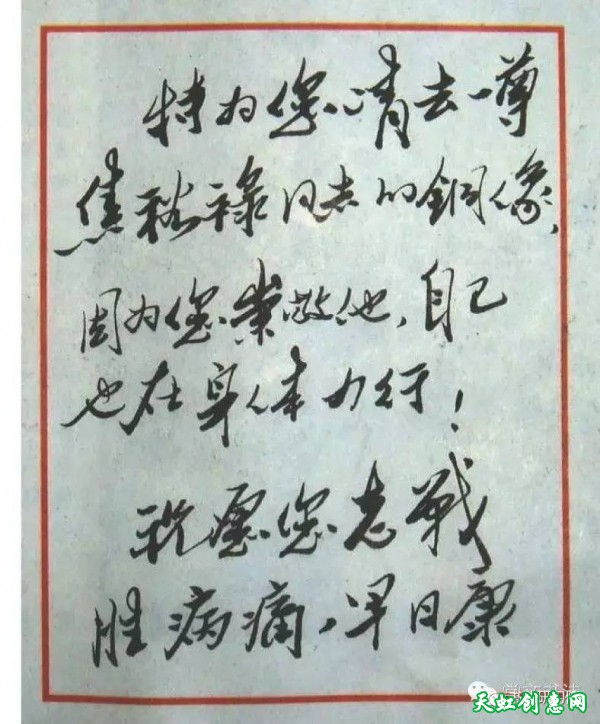 特为您请去一尊
焦裕禄同志的銅像，
因为您崇敬他，自己
也在身体力行！
祝愿您志战
胜病痛，早日康
天虹创惠网